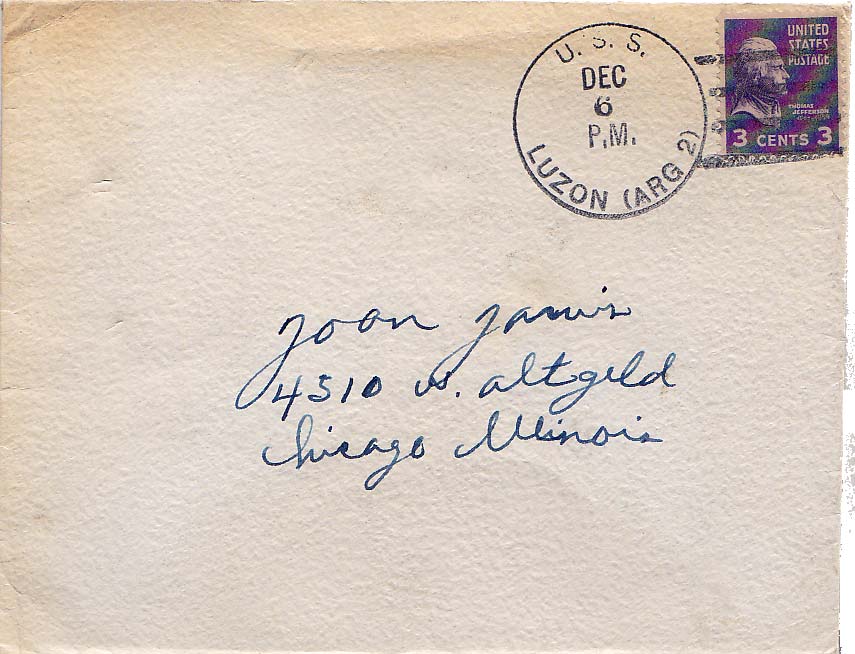 U. S. S.
DEC
6
P.M.
LUZON (ARG 2)
UNITED
STATES
POSTAGE
THOMAS
JEFFERSON
3 CENTS 3
Joan Jarvis
4310 W. Altgeld
Chicago Illinois